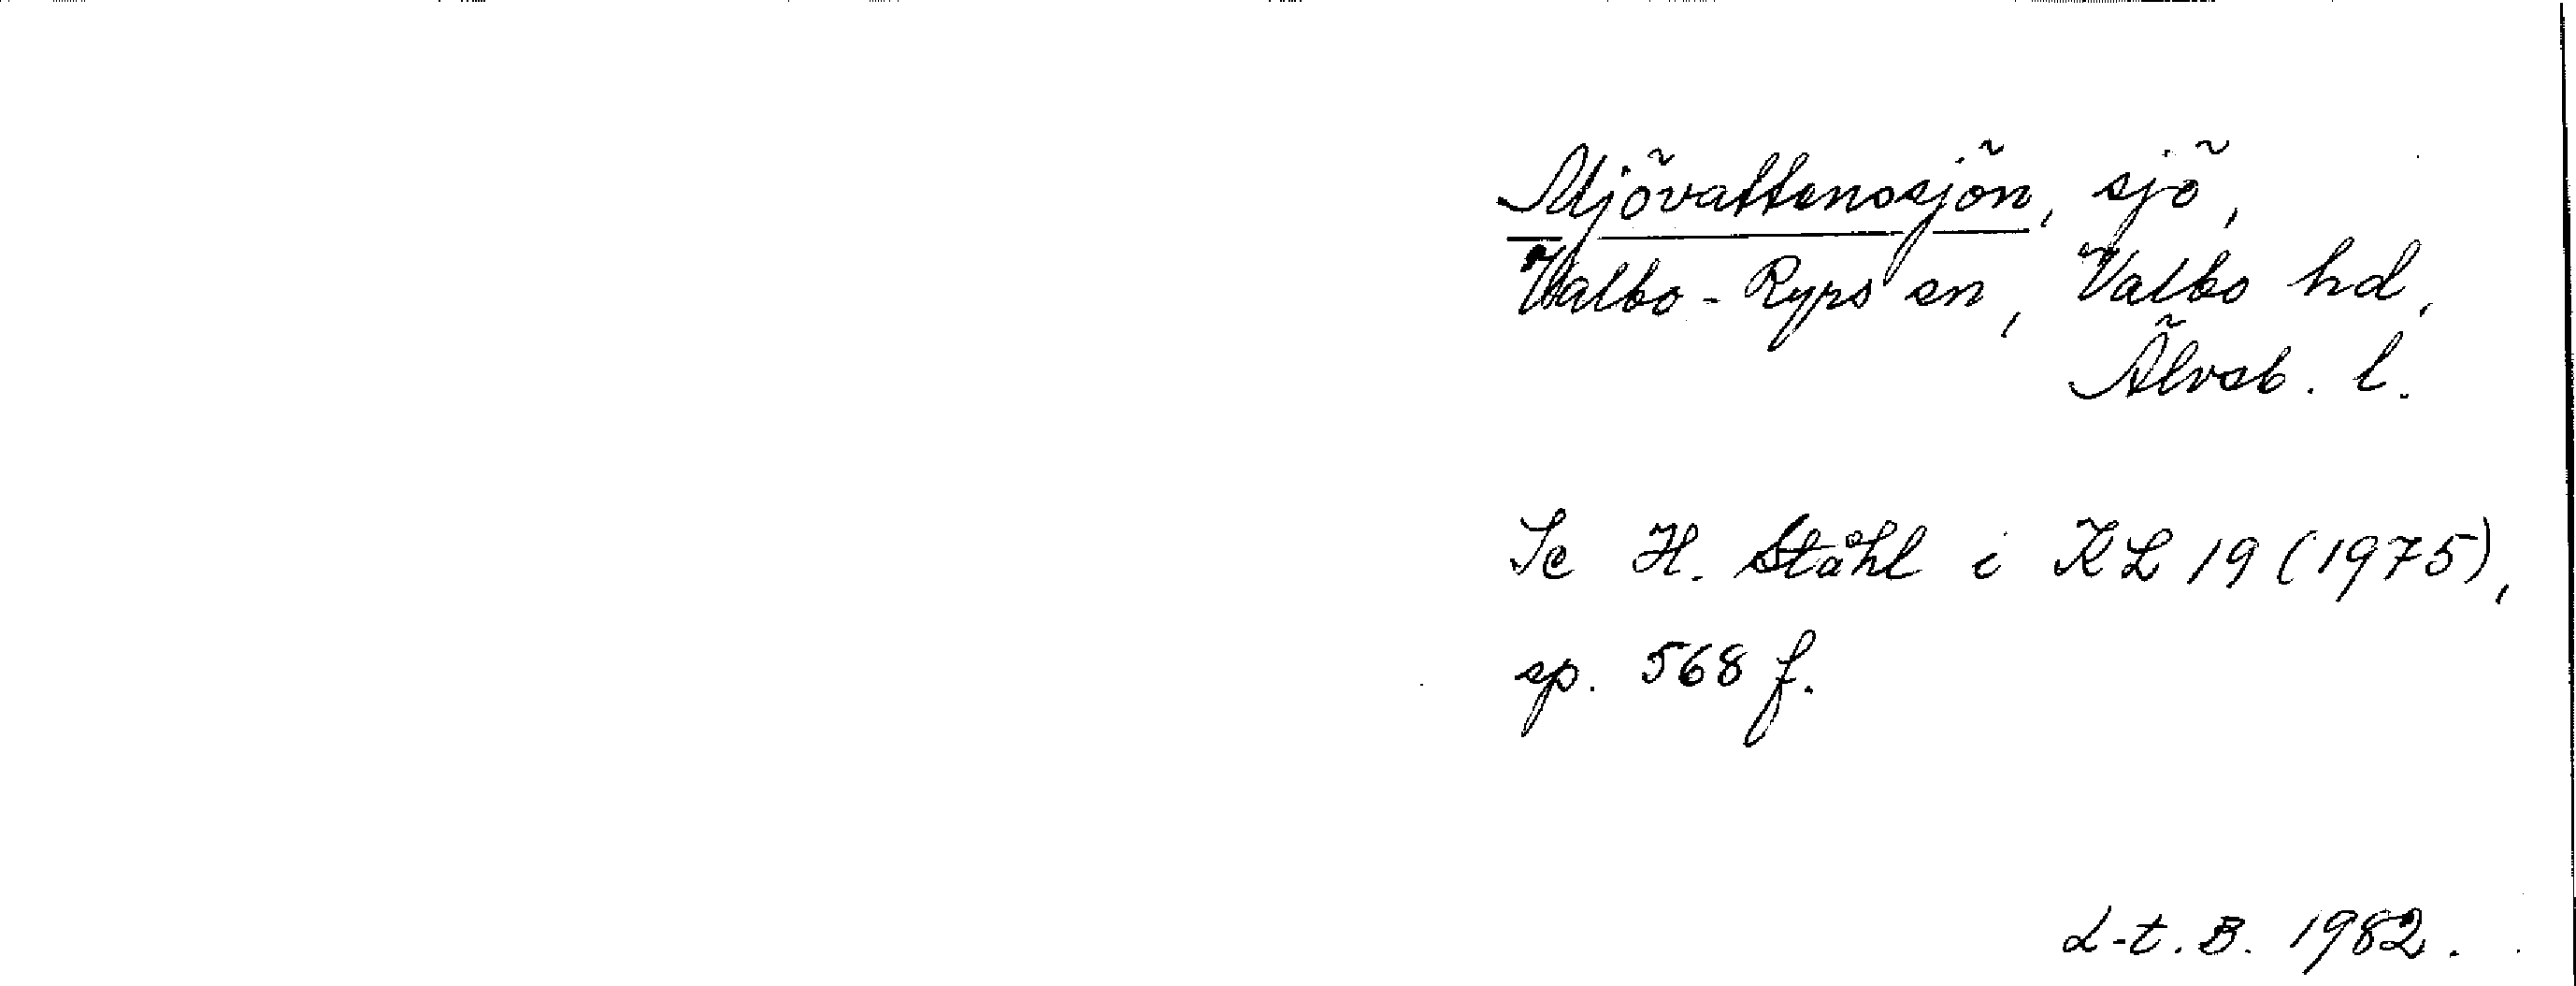 Mjövattensjön, sjö,
Valbo-Ryrs sn, Valbo hd,
Älvsb. l.
Se H. Ståhl i KL 19 (1975),
sp. 568 f.
L-t. B. 1982.